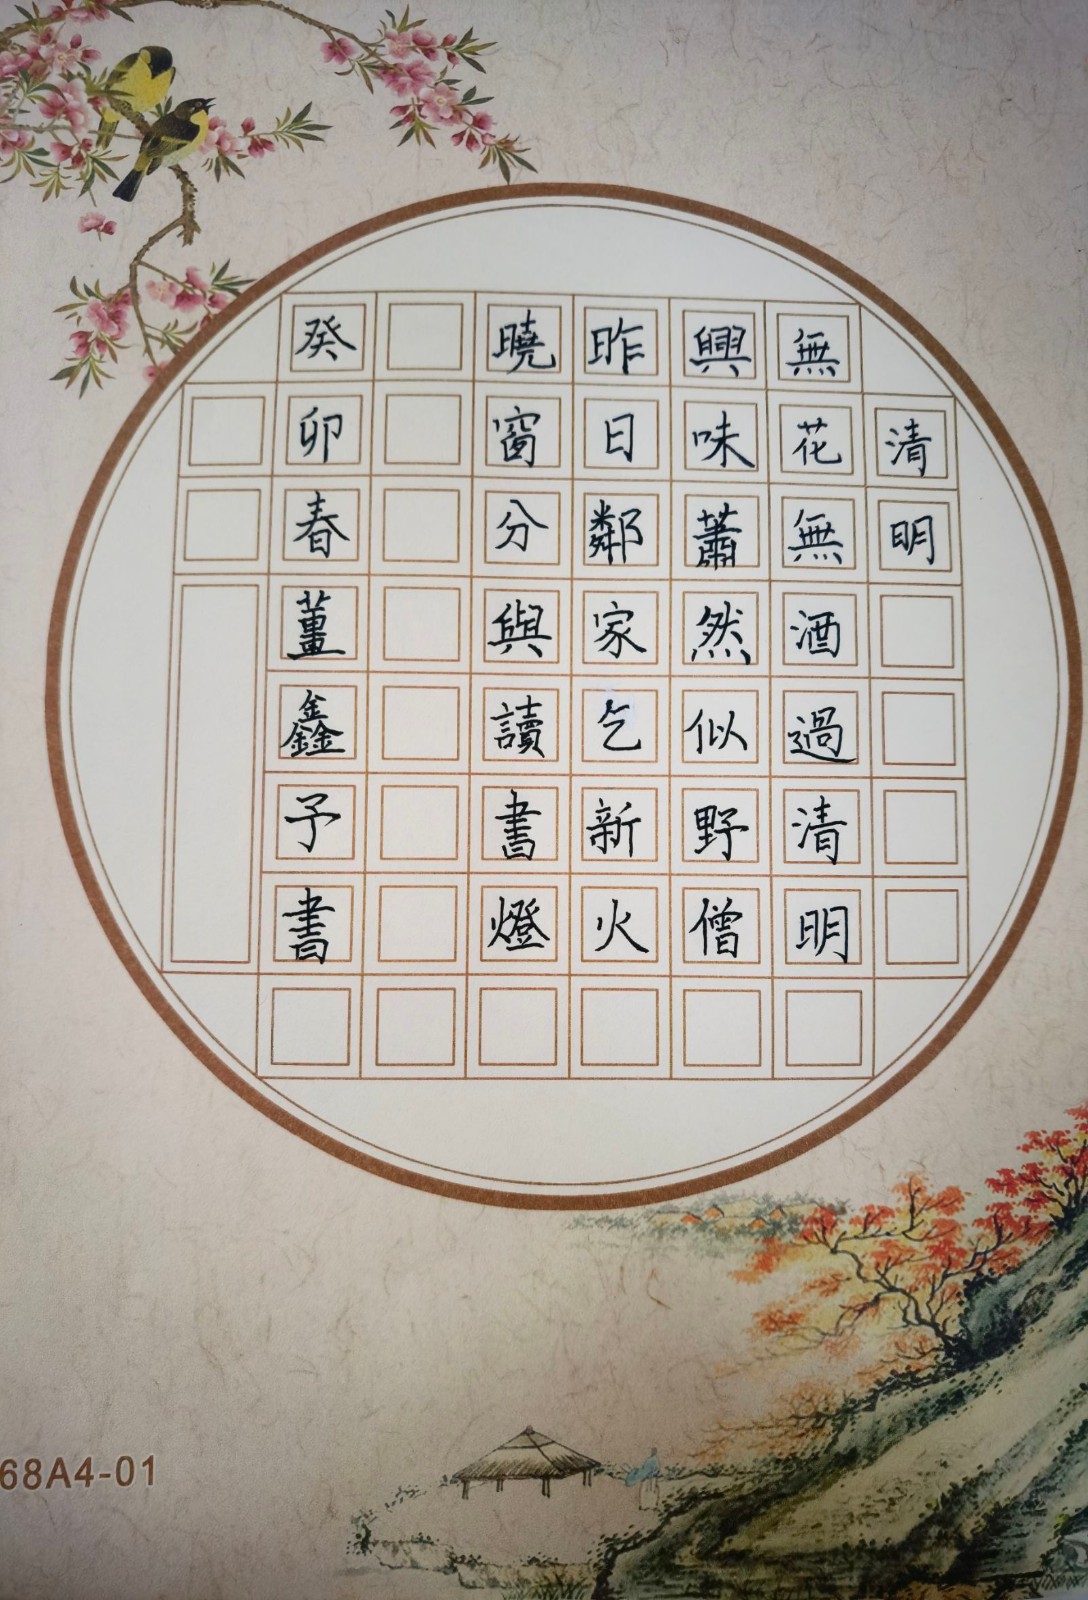 清明
無花無酒過清明
興味蕭然似野僧
昨日鄰家乞新火
曉窗分與讀書燈
癸卯春薑鑫予書
68A4-01